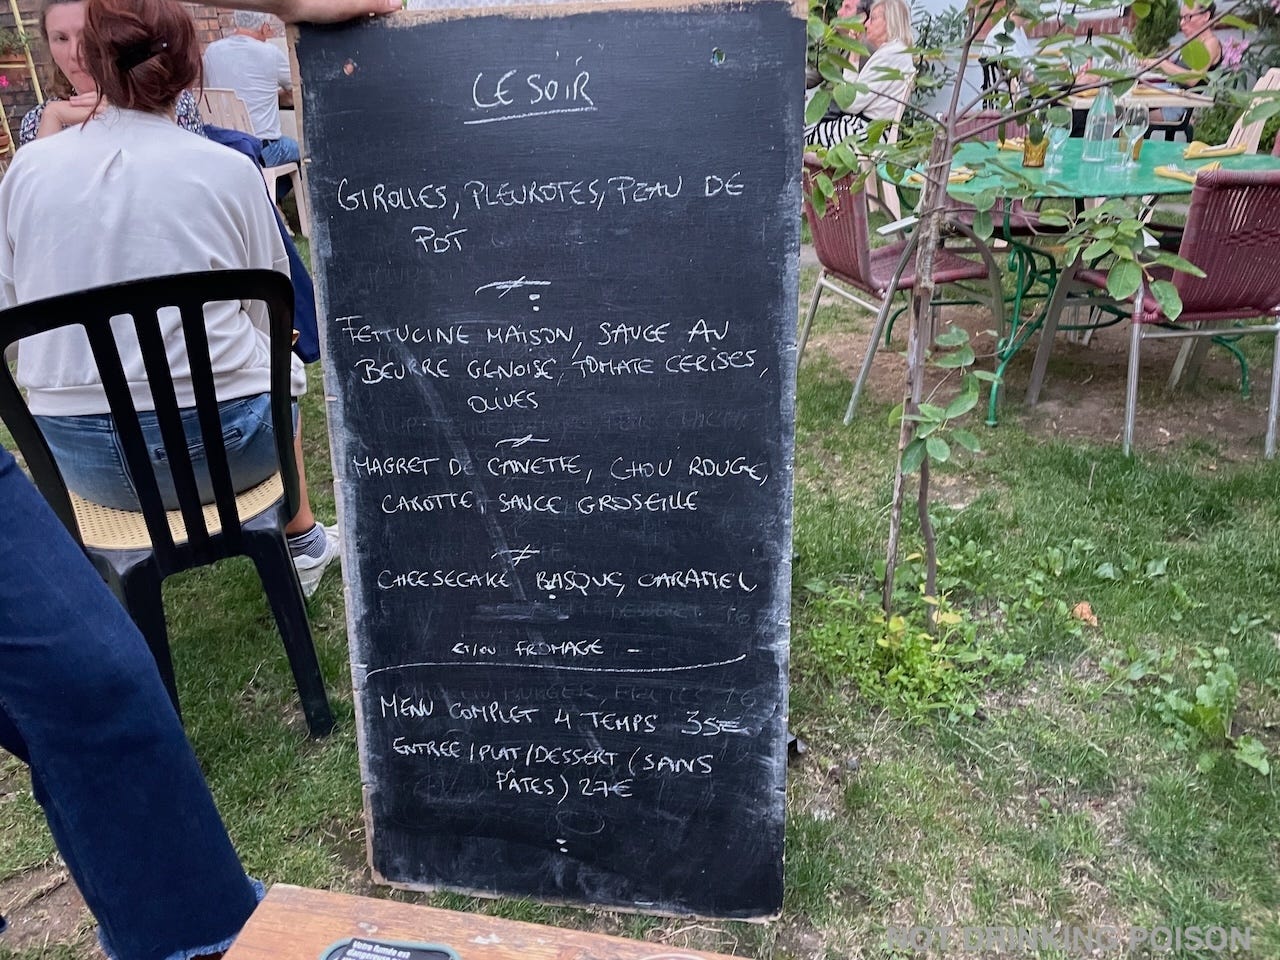 CE SOIR
GIROLLES, PLEUROTES, PEAU DE
PDT
FETTUCINE MAISON, SAUCE AU
BEURRE GENOISE, TOMATE CERISES,
OLIVES
MAGRET DE CANETTE, CHOU ROUGE,
CAROTTE, SAUCE GROSEILLE
CHEESECAKE BASQUE, CARAMEL
FROMAGE -
MENU COMPLET 4 TEMPS 35€
ENTREE/PLAT/DESSERT (SANS
PÂTES) 27€
Votre fumée est
NOT DRINKING POISON